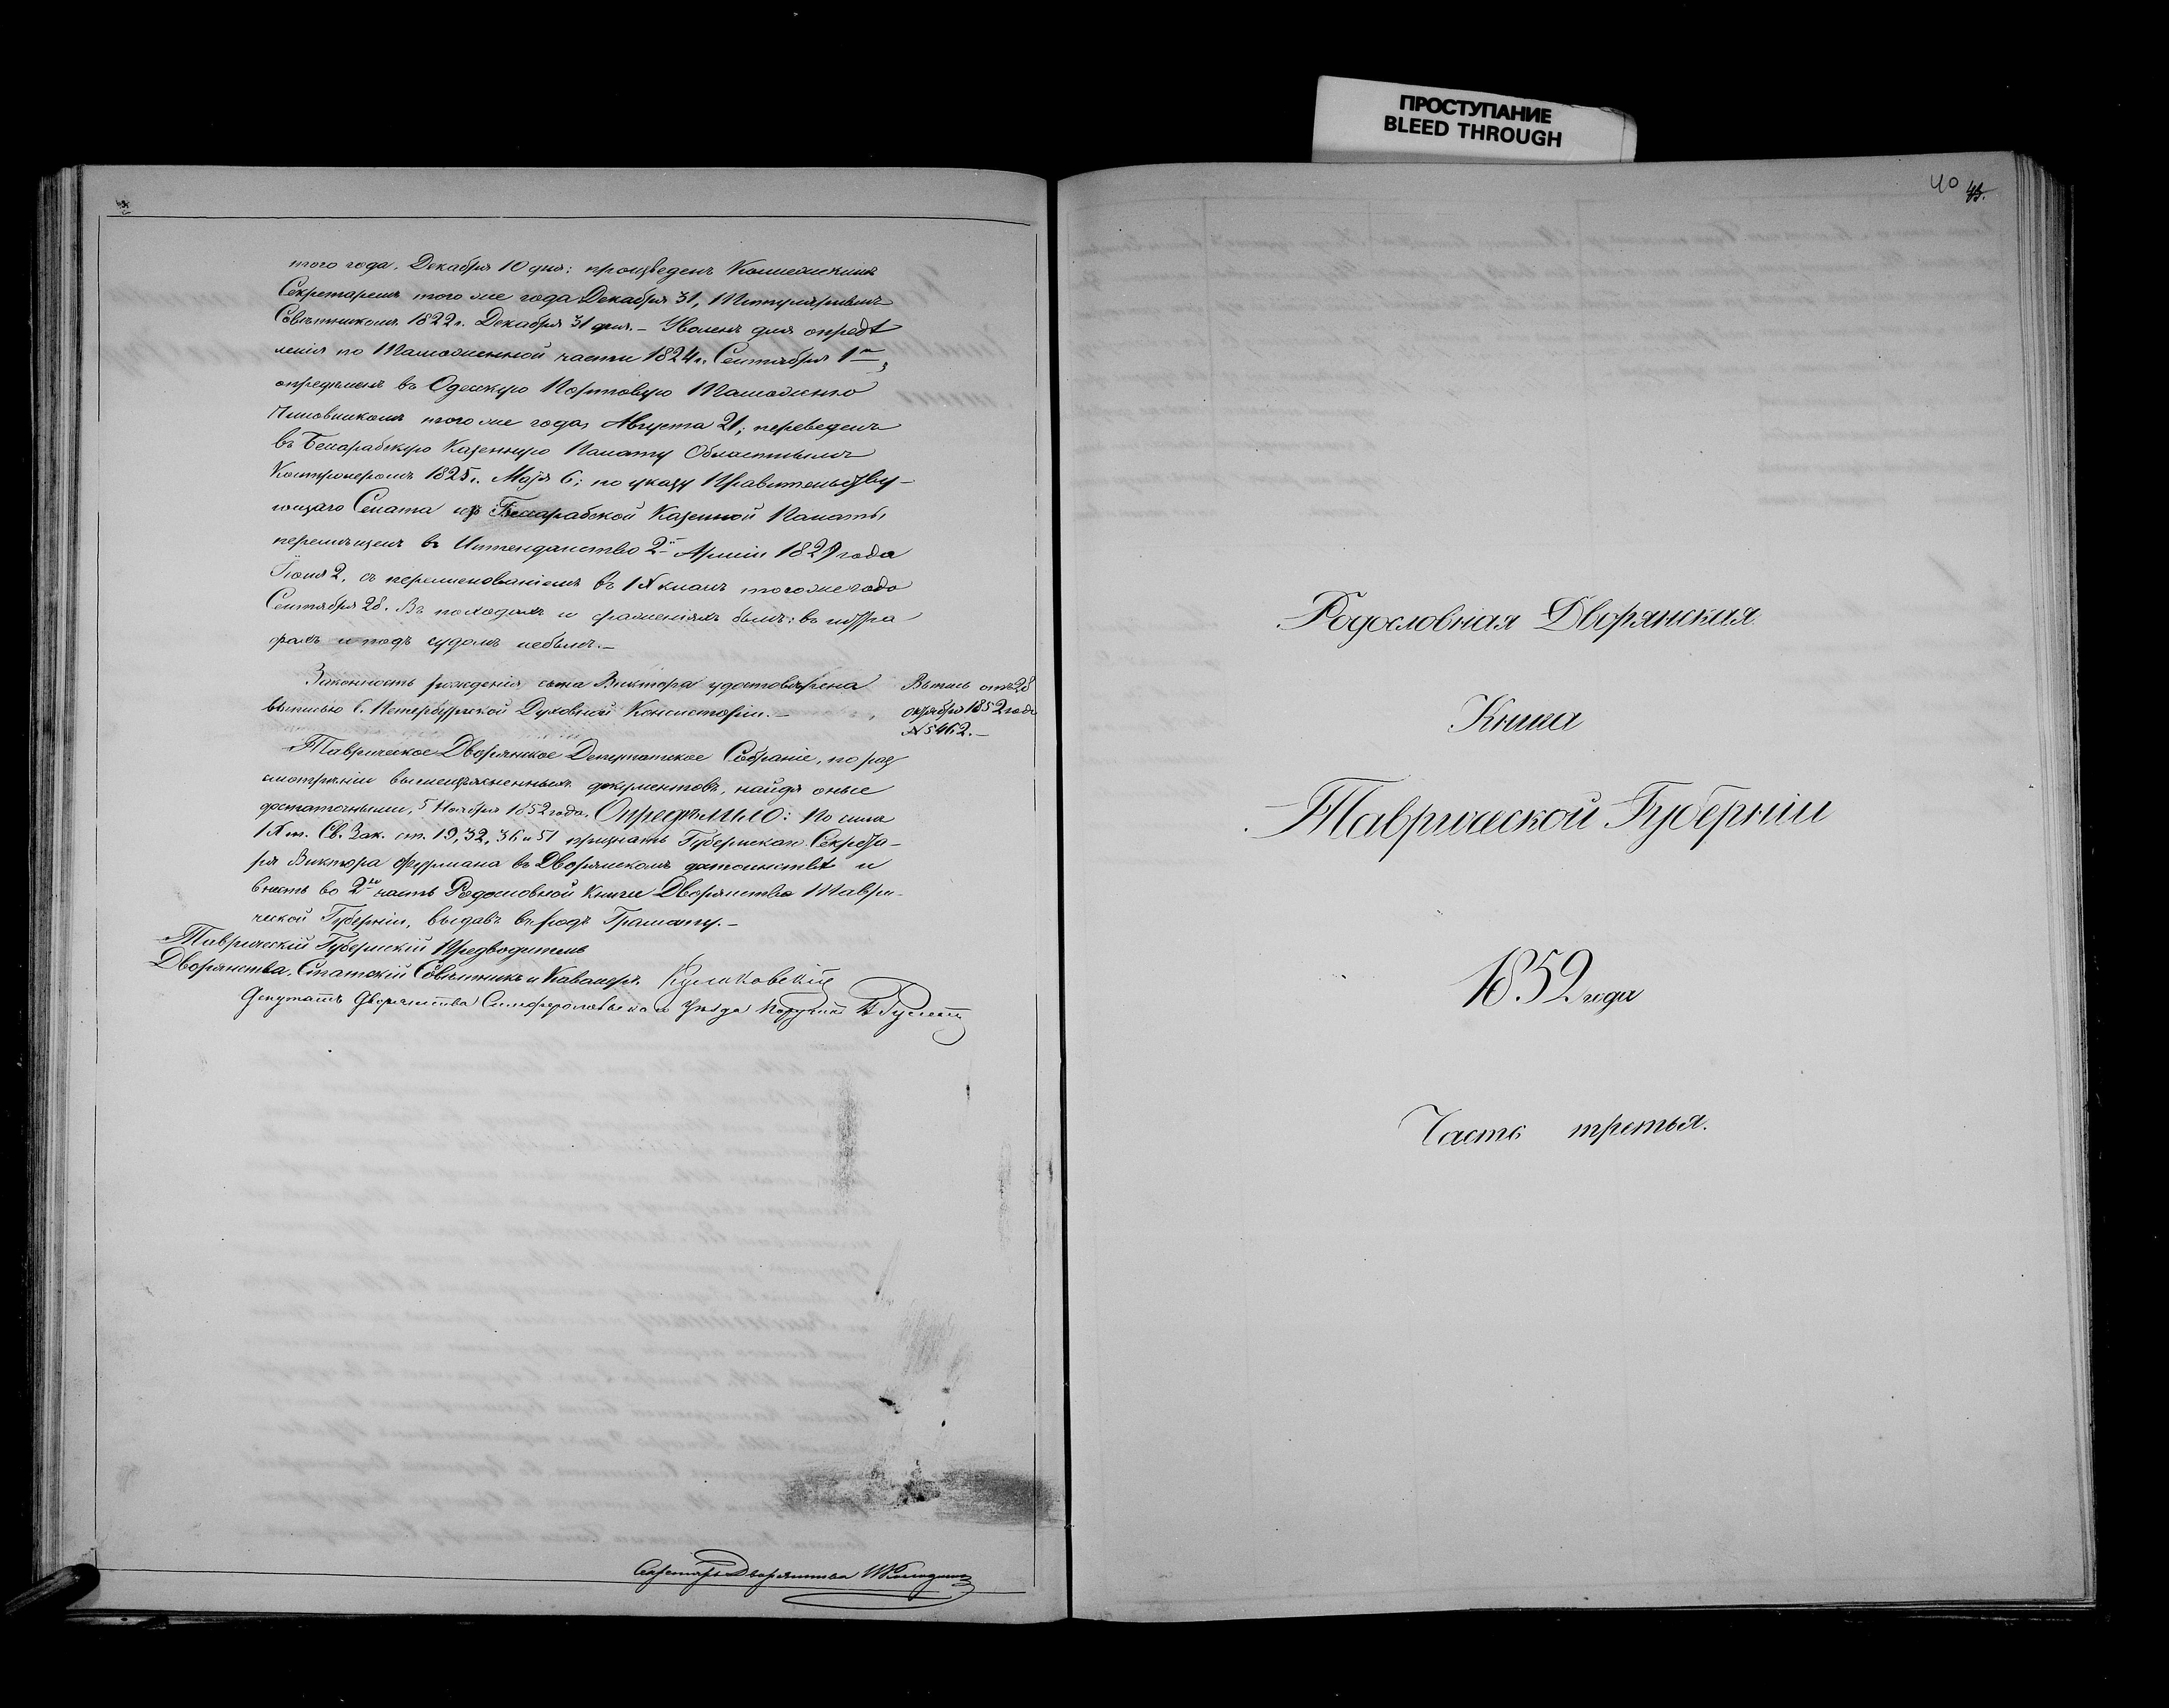 ПРОСТУПАНИЕ
BLEED THROUGH
того года, Декабря 10 дня: произведенъ Коллежскимъ
Секретаремъ того же года Декабря 31, Титулярнымъ
Совѣтникомъ 1822 г. Декабря 31 дня. – Уволенъ для опредѣ
ленія по Таможенной части 1824 г. Сентября 1го,
опредѣленъ въ Одесскую Портовую Таможню
Чиновникомъ того же года, Августа 21; переведенъ
въ Бессарабскую Казенную Палату Областнымъ
Контролеромъ 1825 г. Маія 6; по указу Правительству-
ющаго Сената изъ Бессарабской Казенной Палаты
перемѣщенъ въ Интендантство 2й Арміи 1829 года
Іюня 2, съ переименованіемъ въ IX классъ того же года
Сентября 28. Въ походахъ и сраженіяхъ былъ: въ штра
фахъ и подъ судомъ небылъ. –
Законность рожденія сына Виктора удостовѣрена
выписью С. Петербургской Духовной Консисторіи. –
Выпись отъ 28
октября 1852 года
№ 5462. –
Таврическое Дворянское Депутатское Собраніе, по раз
смотрѣніи вышеизъясненныхъ документовъ, найдя оные
достаточными, 5 Ноября 1852 года, Опредѣлило: По силѣ
IX т. Св. Зак. ст. 19, 32, 36 и 51 признать Губернскаго Секрета-
ря Виктора Фурмана въ Дворянскомъ достоинствѣ и
внесть во 2ю часть Родословной Книги Дворянства Таври-
ческой Губерніи, выдавъ въ родъ Грамоту. –
Таврическій Губернскій Предводитель
Дворянства, Статскій Совѣтникъ и Кавалеръ Куликовскій
Депутатъ Дворянства Симферопольскаго Уѣзда Поручикъ
Секретарь Дворянства
40 43.
Родословная Дворянская
Книга
Таврической Губерніи
1859. года
Часть третья.